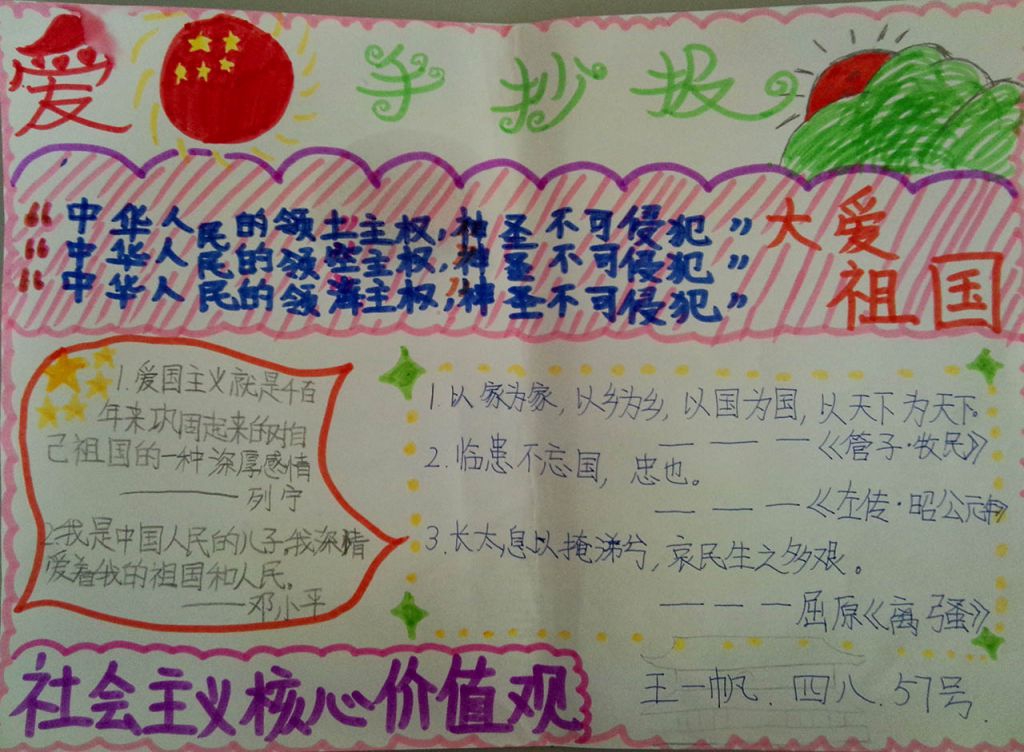 爱 手抄报
“中华人民的领土主权,神圣不可侵犯”
“中华人民的领空主权,神圣不可侵犯”
“中华人民的领海主权,神圣不可侵犯。”
大爱
祖国
1.爱国主义就是千百
年来巩固起来的对自
己祖国的一种深厚感情
——列宁
2.我是中国人民的儿子,我深情
爱着我的祖国和人民。
——邓小平
1.以家为家,以乡为乡,以国为国,以天下为天下。
———《管子·牧民》
2.临患不忘国,忠也。
———《左传·昭公元年》
3.长太息以掩涕兮,哀民生之多艰。
———屈原《离骚》
社会主义核心价值观
王一帆.四八.57号.